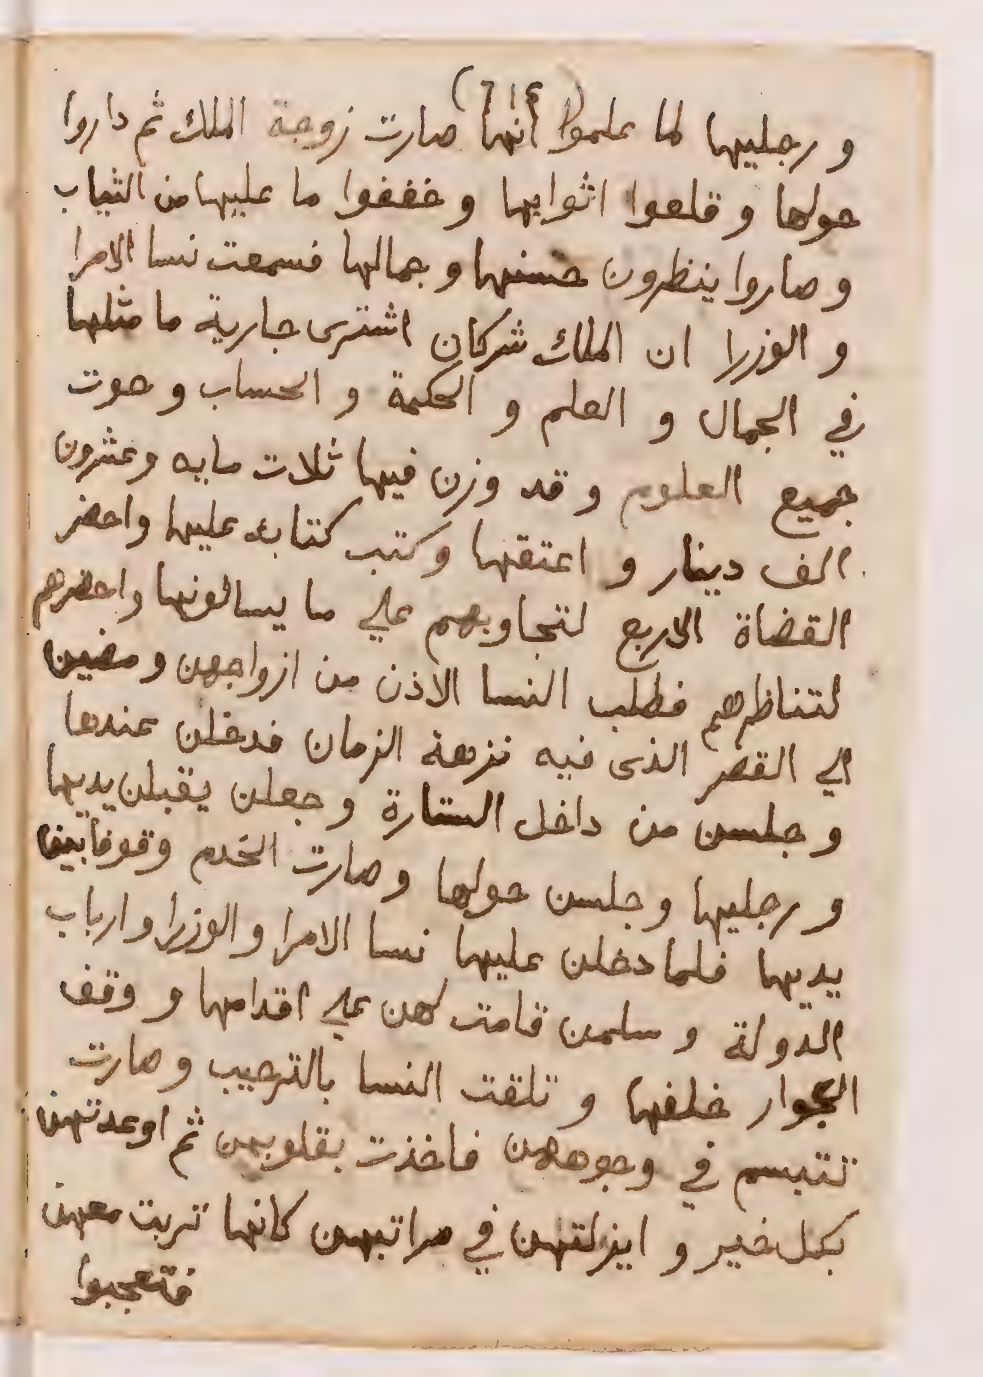 (٧١٤)
و رجليها لما علموا انها صارت زوجة الملك ثم داروا
حولها و قلعوا اثوابها و خففوا ما عليها من الثياب
و صاروا ينظرون حسنها و جمالها فسمعت نسا الامرا
و الوزرا ان الملك شركان اشترى جارية ما مثلها
في الجمال و العلم و الحكمة و الحساب و حوت
جميع العلوم و قد وزن فيها ثلاث مايه وعشرون
الف دينار و اعتقها وكتب كتابه عليها واحضر
القضاة الاربع لتجاوبهم علي ما يسالونها واحضرهم
لتناظرهم فطلب النسا الاذن من ازواجهن و مضين
الي القصر الذى فيه نزهة الزمان فدخلن عندها
و جلسن من داخل الستارة و جعلن يقبلن يديها
و رجليها و جلسن حولها وصارت الخدم وقوفا بين
يديها فلما دخلن عليها نسا الامرا و الوزرا و ارباب
الدولة و سلمن قامت لهن علي اقدامها و وقف
الجوار خلفها و تلقت النسا بالترحيب و صارت
تتبسم في وجوههن فاخذت بقلوبهن ثم اوعدتهن
بكل خير و انزلتهن في مراتبهن كانها تربت معهن
فتعجبوا